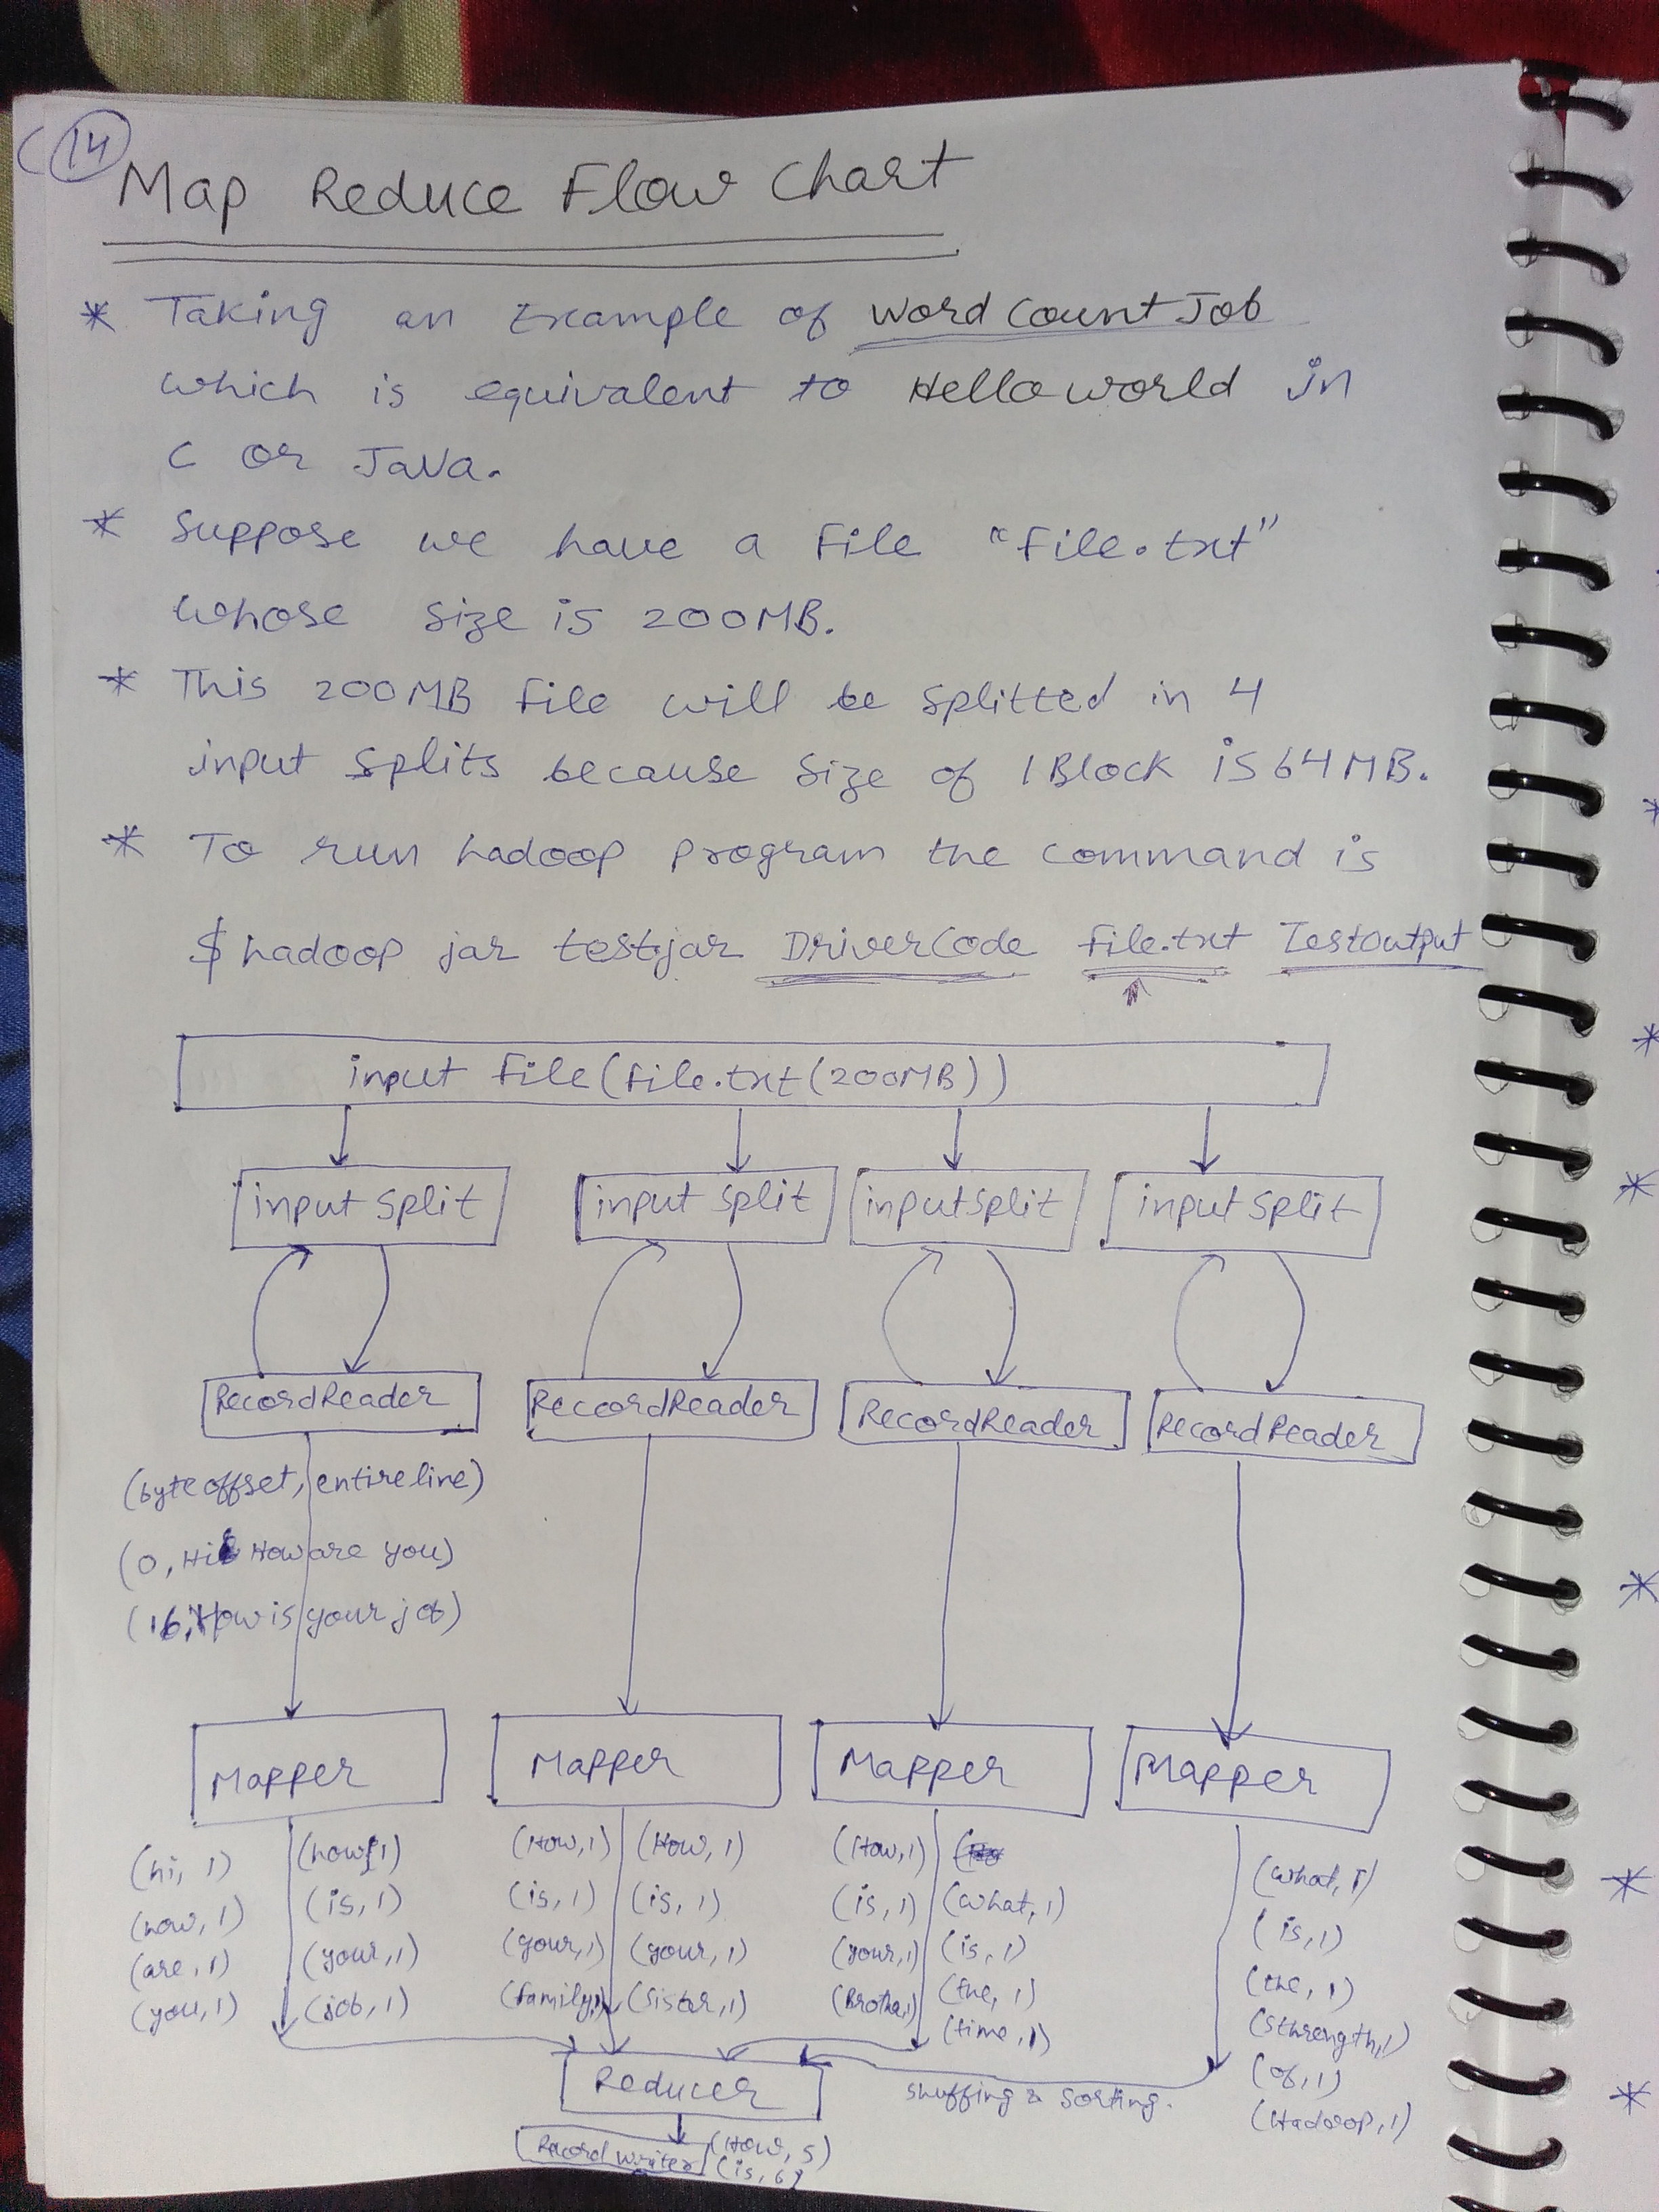 14
Map Reduce Flow Chart
* Taking an Example of Word Count Job
which is equivalent to Hello world in
C or Java.
* Suppose we have a File "File.txt"
whose size is 200MB.
* This 200MB File will be splitted in 4
input splits because size of 1 Block is 64MB.
* To run hadoop program the command is
$ hadoop jar test.jar DriverCode File.txt TestOutput
input File (File.txt (200MB))
input split input split input split input split
RecordReader RecordReader RecordReader RecordReader
(byteoffset, entire line)
(0, Hi How are you)
(16, How is your job)
Mapper Mapper Mapper Mapper
(hi, 1) (how, 1) (How, 1) (How, 1) (How, 1) (what, 1)
(how, 1) (is, 1) (is, 1) (is, 1) (is, 1) (what, 1) (is, 1)
(are, 1) (your, 1) (your, 1) (your, 1) (your, 1) (is, 1) (the, 1)
(you, 1) (job, 1) (family, 1) (sister, 1) (Brother, 1) (the, 1) (Sthrength, 1)
(time, 1) (of, 1)
(Hadoop, 1)
Reducer shuffing & sorting.
Record Writer (How, 5)
(is, 6)